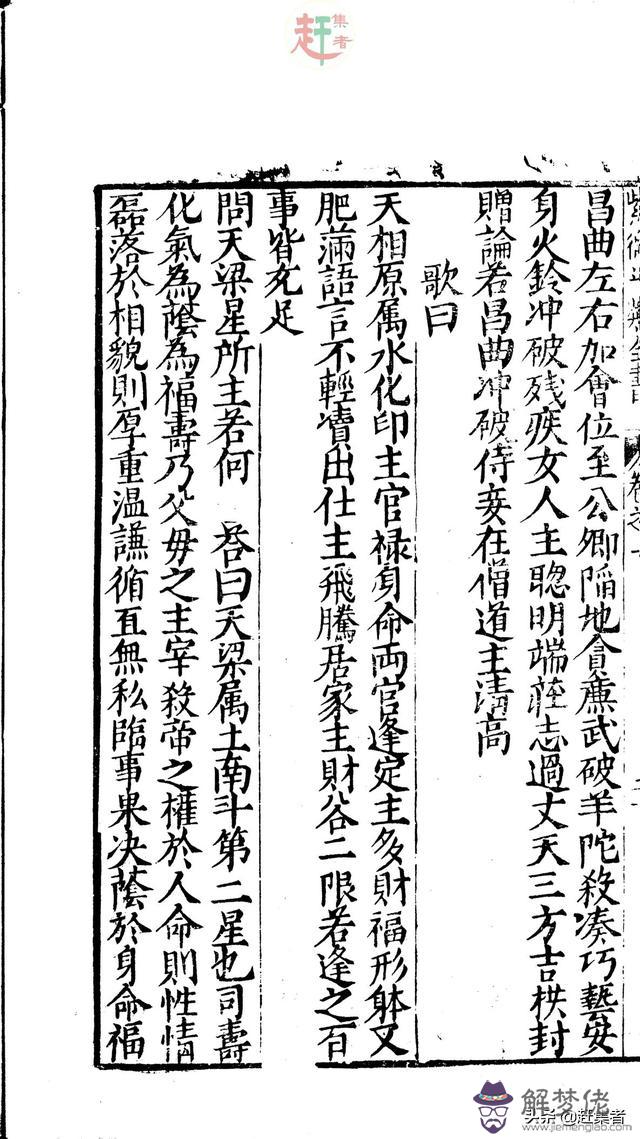 赶集者
紫微斗數全書 卷之一
昌曲左右加會位至公卿陷地貪廉武破羊陀殺凑巧藝安
身火鈴冲破残疾女人主聰明端莊志過丈夫三方吉拱封
贈論若昌曲冲破侍妾在僧道主清高
歌曰
天相原属水化印主官禄身命両宫逢定主多財福形躰又
肥滿語言不輕瀆出仕主飛騰居家主財谷二限若逢之百
事皆充足
問天梁星所主若何 答曰天梁属土南斗第二星也司壽
化氣為蔭為福壽乃父母之主宰殺帝之權於人命則性情
磊落於相貌則厚重温謙循直無私臨事果决蔭於身命福
解梦佬
www.jiemenglao.com
头条@赶集者